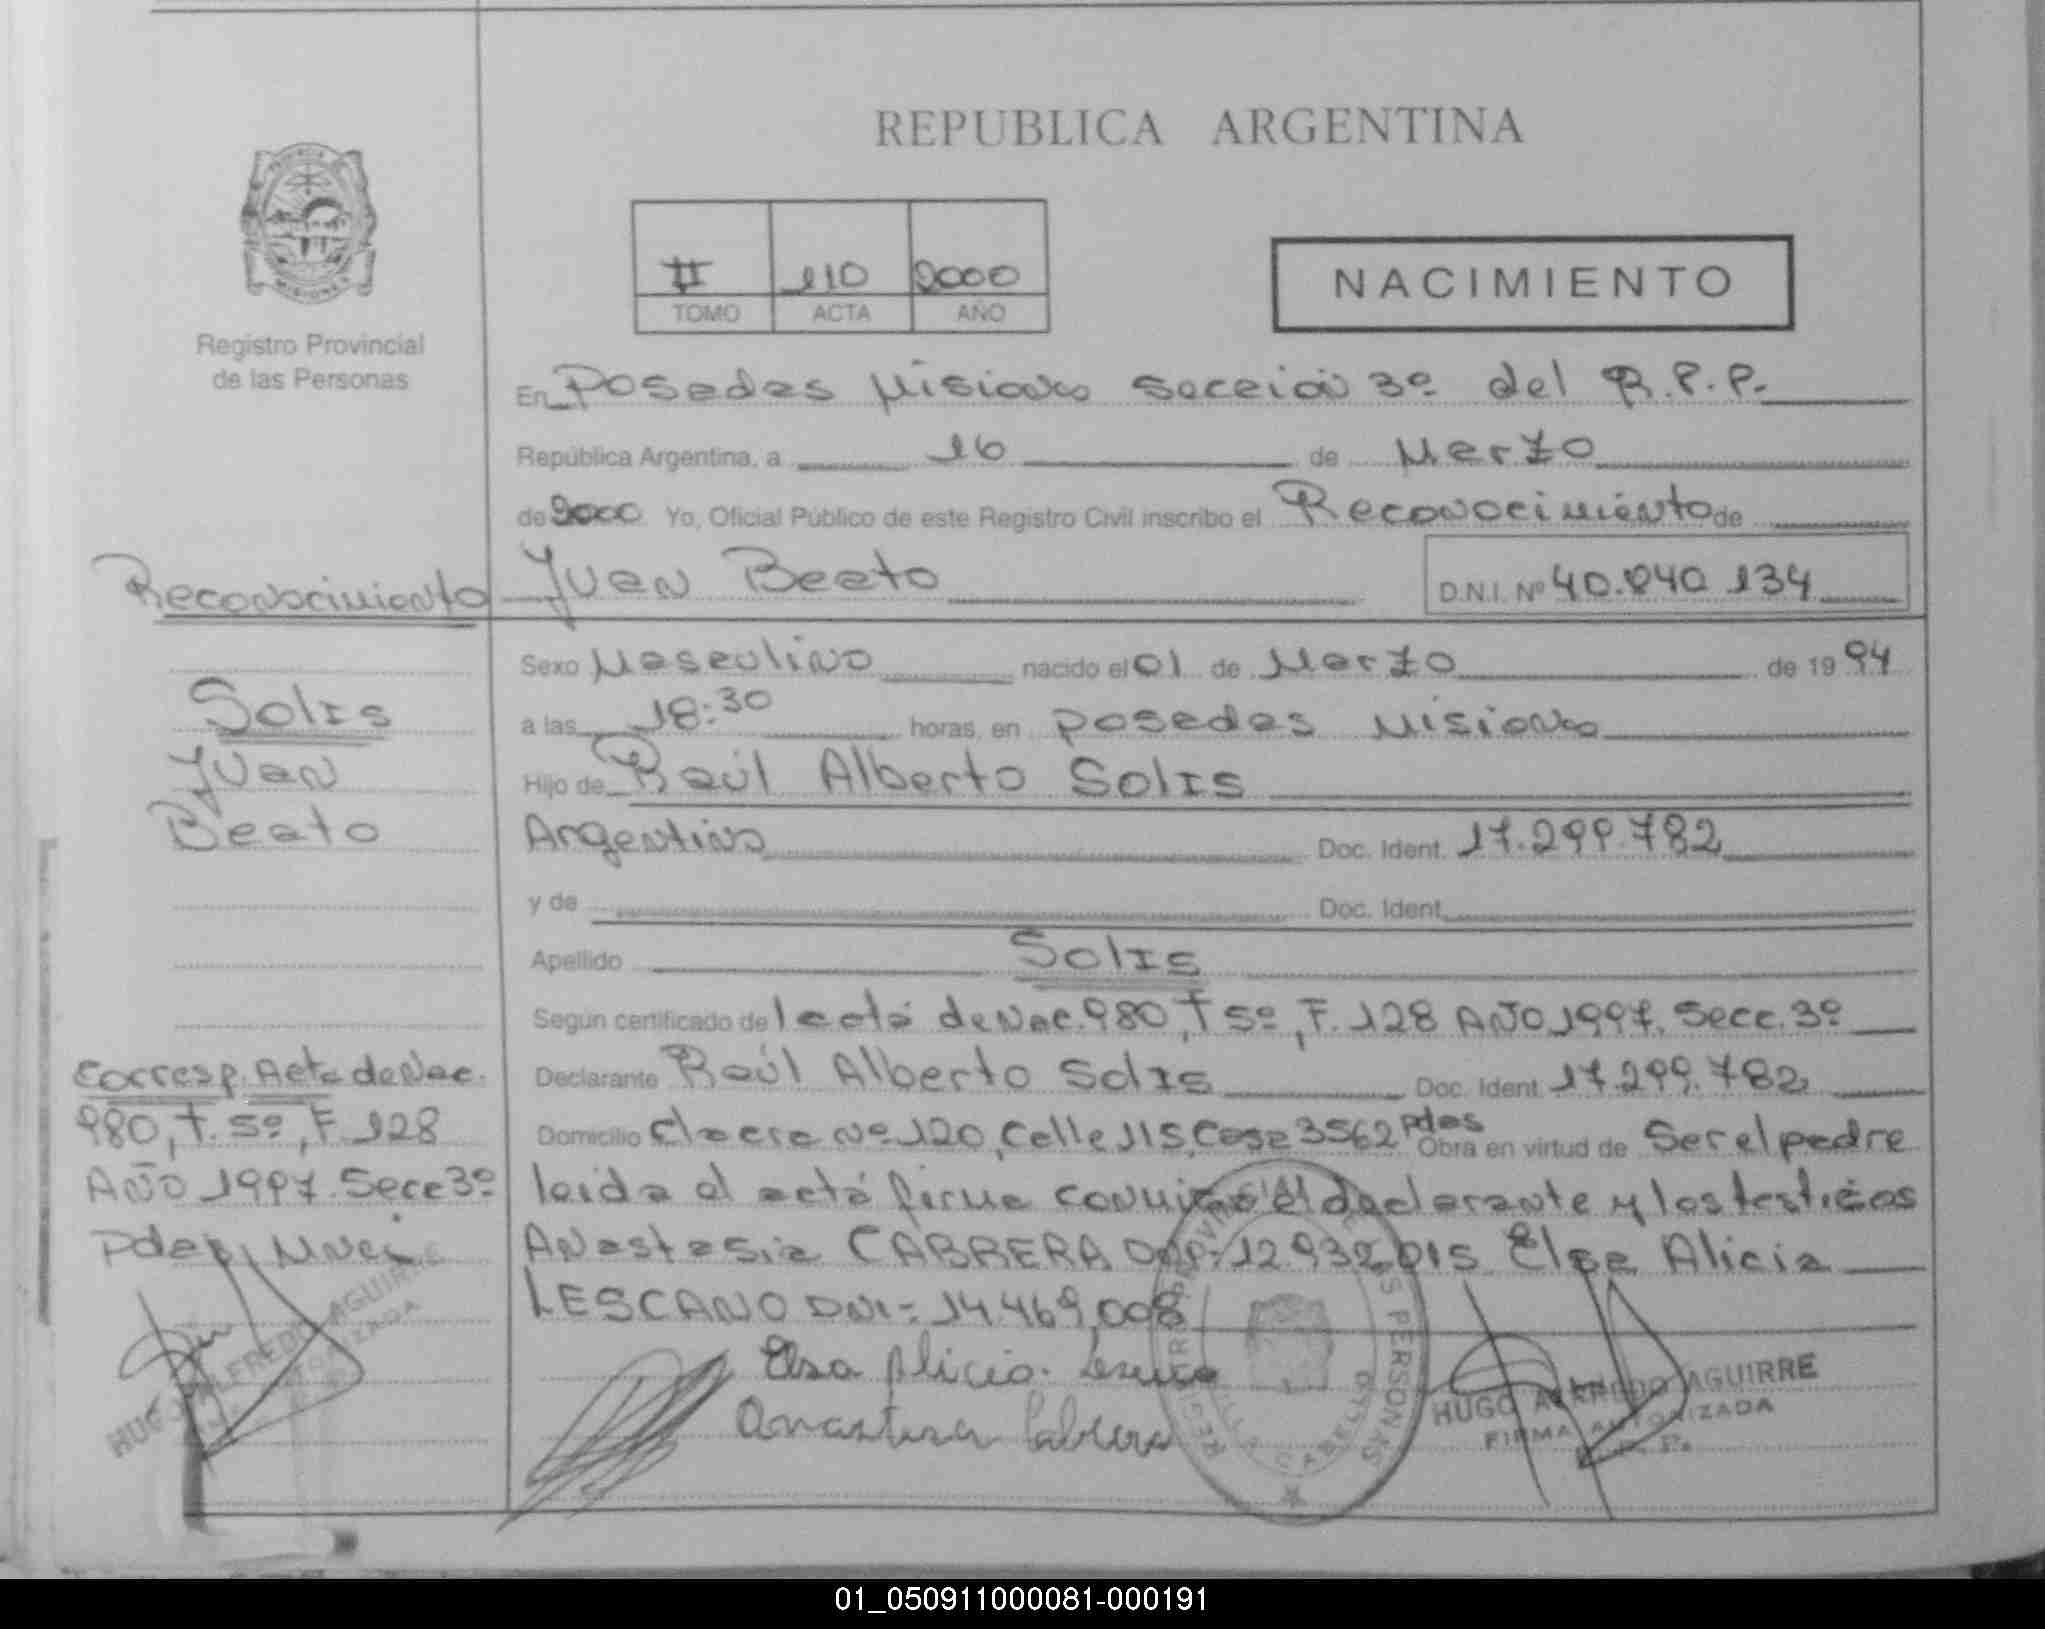 REPUBLICA ARGENTINA
PROVINCIA
MISIONES
Registro Provincial
de las Personas
II 110 2000
TOMO ACTA AÑO
NACIMIENTO
En Posadas Misiones sección 3º del R.P.P.
República Argentina, a 16 de Marzo
de 2000 Yo, Oficial Público de este Registro Civil inscribo el Reconocimiento de
Juan Beato D.N.I. Nº 40.040 134
Reconocimiento
Solis
Juan
Beato
Corresp. Acta de Nac.
980, T. 5º, F. 128
AÑO 1997. Secc 3º
Pdas, Mnes
HUGO ALFREDO AGUIRRE
FIRMA AUTORIZADA
Sexo Masculino nacido el 01 de Marzo de 19 94
a las 18:30 horas, en posadas Misiones
Hijo de Raúl Alberto Solis
Argentino Doc. Ident. 17.299.782
y de Doc. Ident.
Apellido Solis
Según certificado de l acta de Nac. 980, T 5º, F. 128 AÑO 1997. Secc. 3º
Declarante Raúl Alberto Solis Doc. Ident. 17.299.782
Domicilio Chacra Nº 120, Calle 115, Casa 3562 Pdas Obra en virtud de Ser el padre
leida el acta firma conmigo el declarante y los testigos
Anastasia CABRERA DNI: 12.932.015 Elsa Alicia
LESCANO DNI: 14.469.008
Elsa Alicia Lescano
Anastasia Cabrera
REGISTRO PROVINCIAL DE LAS PERSONAS
VILLA CABELLO
HUGO ALFREDO AGUIRRE
FIRMA AUTORIZADA
01_050911000081-000191